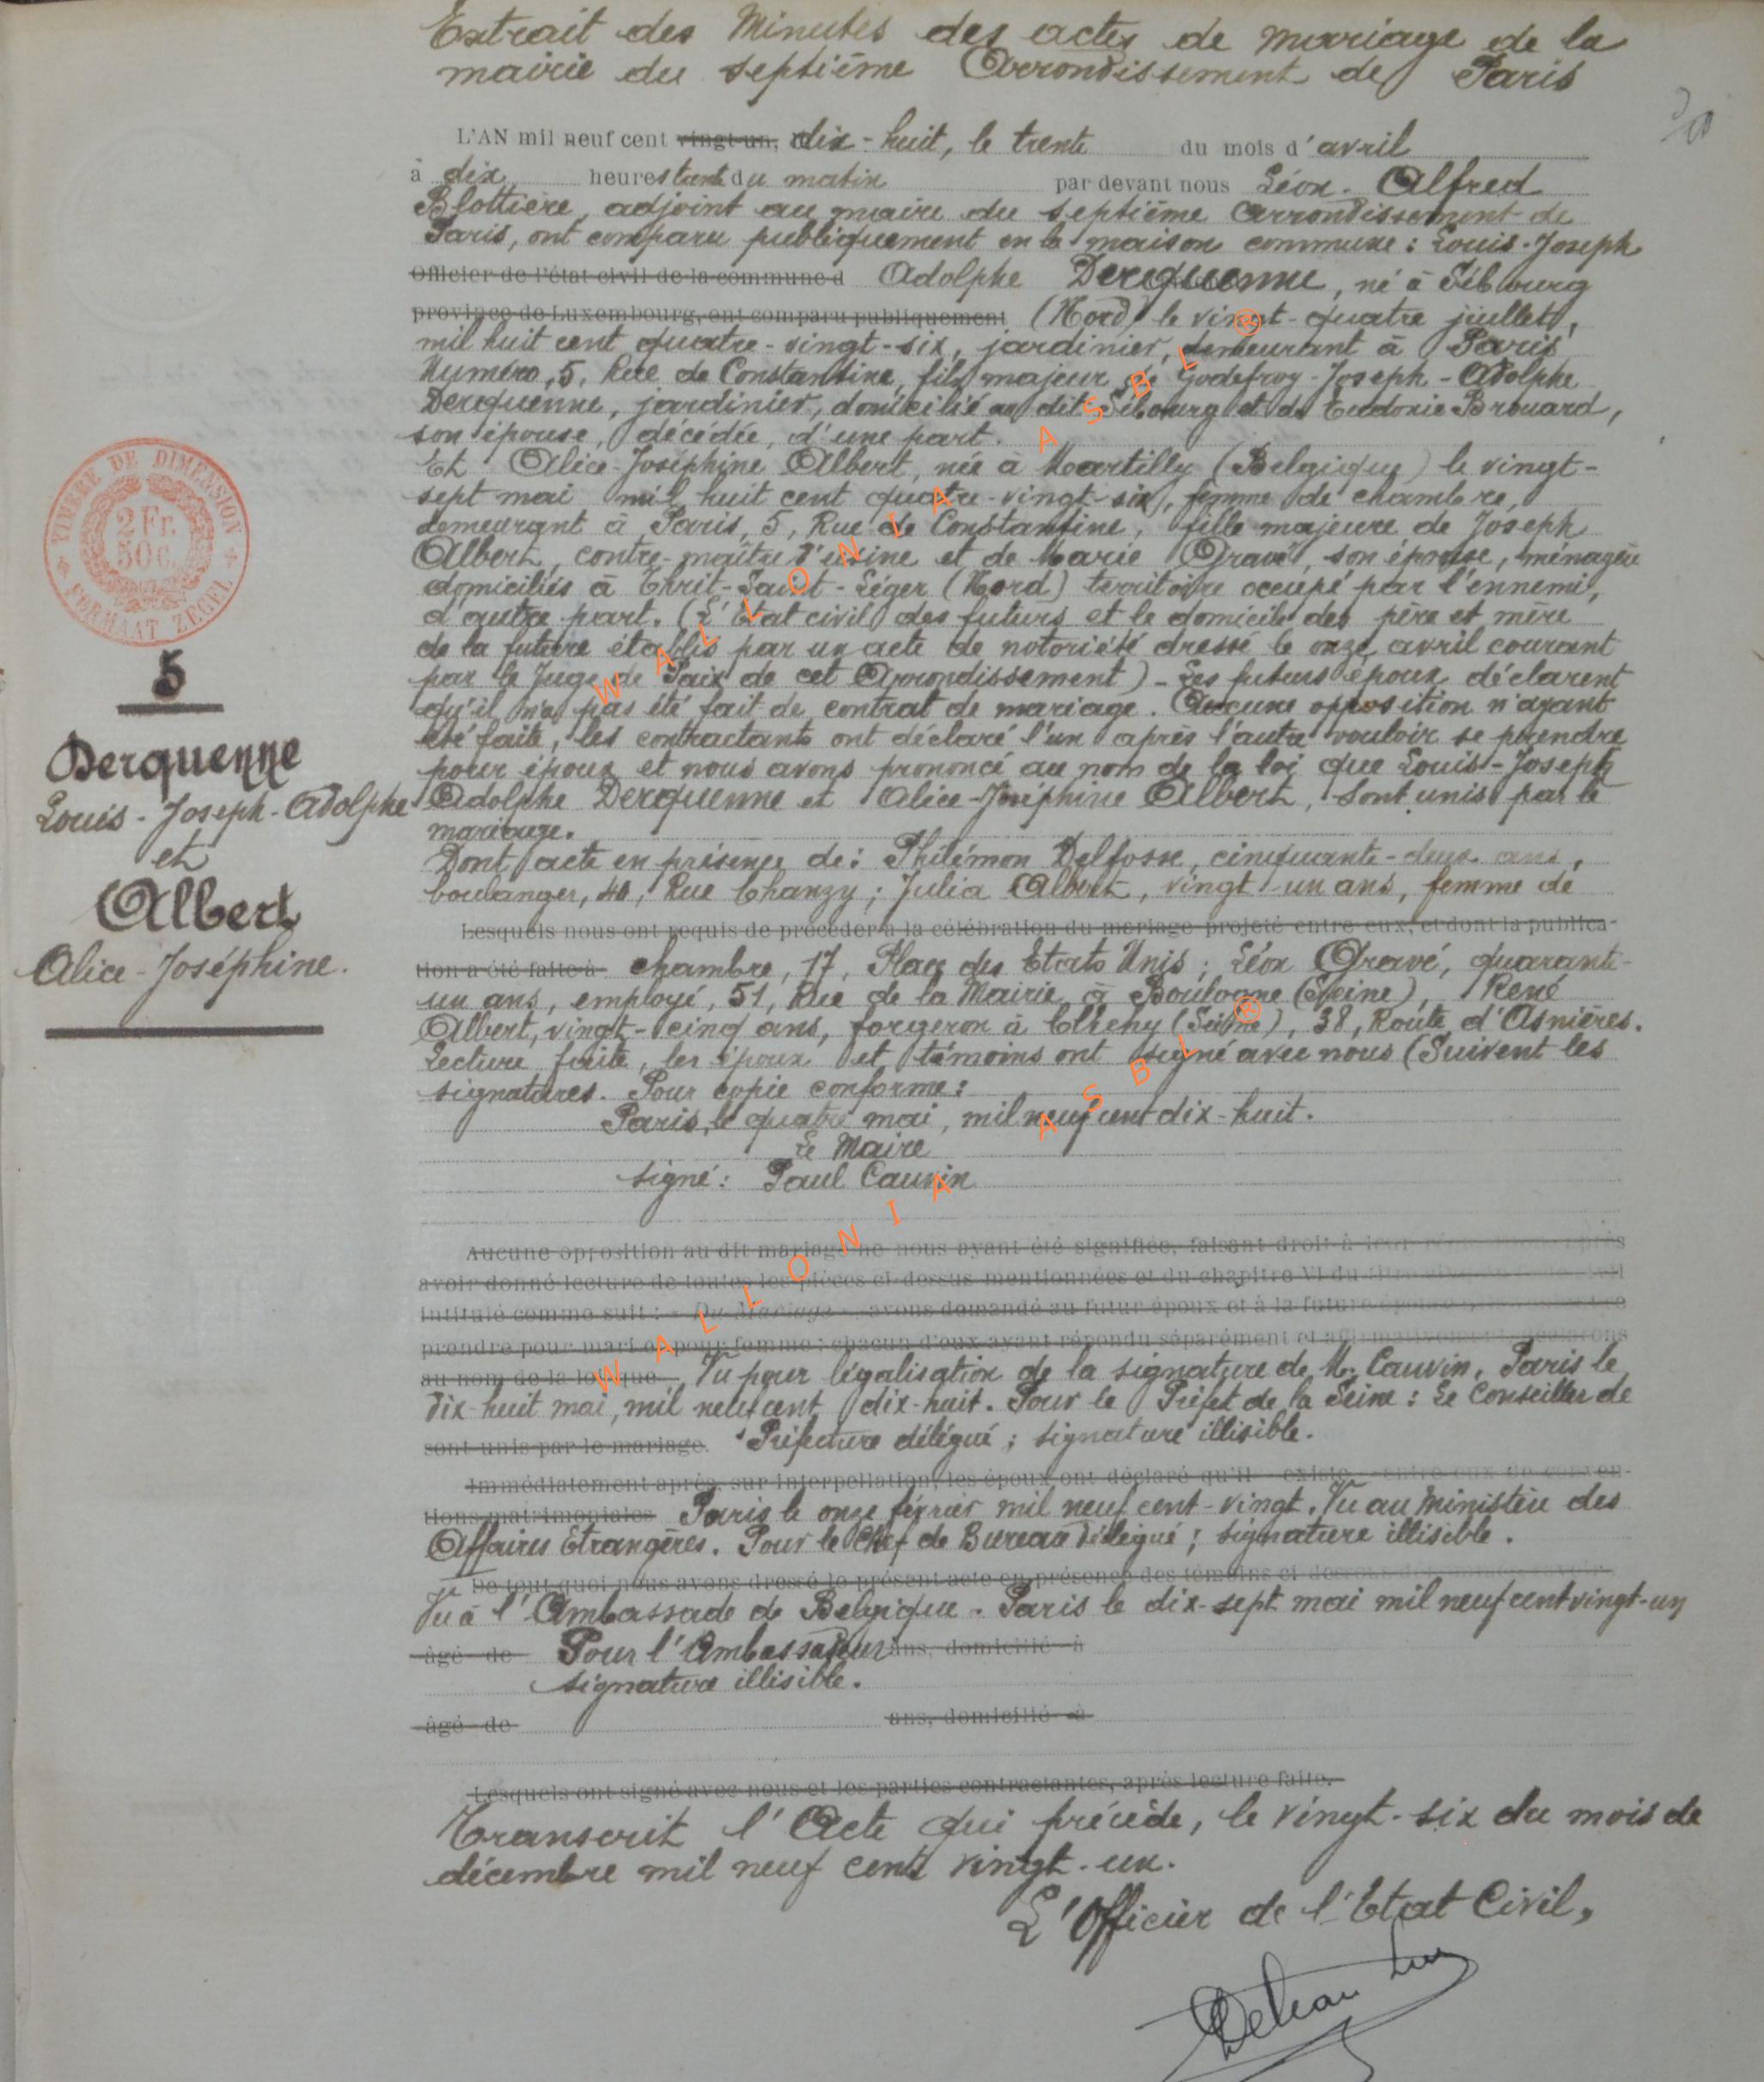 Extrait des Minutes des actes de mariage de la
mairie du septième Arrondissement de Paris
L'AN mil neuf cent vingt-un, dix-huit, le trente du mois d'avril
à dix heures trente du matin par devant nous Léon-Alfred
Blottière, adjoint au maire du septième arrondissement de
Paris, ont comparu publiquement en la maison commune : Louis-Joseph
Officier de l'état civil de la commune d Adolphe Derquenne, né à Sébourg
province de Luxembourg, ont comparu publiquement (Nord) le vingt-quatre juillet,
mil huit cent quatre-vingt-six, jardinier, demeurant à Paris
Numéro, 5, Rue de Constantine, fils majeur de Godefroy-Joseph-Adolphe
Derquenne, jardinier, domicilié au dit Sébourg et de Eudoxie Brouard,
son épouse, décédée, d'une part.
Et Alice-Joséphine Albert, née à Martilly (Belgique) le vingt-
sept mai mil huit cent quatre-vingt-six, femme de chambre,
demeurant à Paris, 5, Rue de Constantine, fille majeure de Joseph
Albert, contre-maître d'usine et de Marie Gravé, son épouse, ménagère
domiciliés à Thrit-Saint-Léger (Nord) territoire occupé par l'ennemi,
d'autre part. (L'Etat civil des futurs et le domicile des père et mère
de la future établis par un acte de notoriété dressé le onze avril courant
par le Juge de Paix de cet Arrondissement) - Les futurs époux déclarent
qu'il n'a pas été fait de contrat de mariage. Aucune opposition n'ayant
été faite, les contractants ont déclaré l'un après l'autre vouloir se prendre
pour époux et nous avons prononcé au nom de la loi que Louis-Joseph
Adolphe Derquenne et Alice-Joséphine Albert, sont unis par le
mariage.
Dont acte en présence de : Philémon Delfosse, cinquante-deux ans,
boulanger, 40, Rue Chanzy ; Julia Albert, vingt-un ans, femme de
Lesquels nous ont requis de procéder à la célébration du mariage projeté entre eux, et dont la publica-
tion a été faite à chambre, 17, Place des Etats Unis ; Léon Gravé, quarante-
un ans, employé, 51, Rue de la Mairie à Boulogne (Seine), René
Albert, vingt-cinq ans, forgeron à Clichy (Seine), 38, Route d'Asnières.
Lecture faite, les époux et témoins ont signé avec nous (Suivent les
signatures. Pour copie conforme :
Paris, le quatre mai, mil neuf cent dix-huit.
Le Maire
signé : Paul Cauvin
Aucune opposition au dit mariage ne nous ayant été signifiée, faisant droit à leur
avoir donné lecture de toutes les pièces ci-dessus mentionnées et du chapitre VI du
intitulé comme suit : « Du Mariage », avons demandé au futur époux et à la future
prendre pour mari et pour femme ; chacun d'eux ayant répondu séparément et affirmativement, déclarons
au nom de la loi que Vu pour légalisation de la signature de M. Cauvin, Paris le
dix-huit mai, mil neuf cent dix-huit. Pour le Préfet de la Seine : Le Conseiller de
sont unis par le mariage. Préfecture délégué ; signature illisible.
Immédiatement après, sur interpellation, les époux ont déclaré qu'il existe entre eux de conven-
tions matrimoniales Paris le onze février mil neuf cent-vingt. Vu au Ministère des
Affaires Etrangères. Pour le Chef de Bureau délégué ; signature illisible.
De tout quoi nous avons dressé le présent acte en présence des témoins ci dessous
Vu à l'Ambassade de Belgique. Paris le dix-sept mai mil neuf cent vingt-un
âgé de Pour l'Ambassadeur ans, domicilié à
signature illisible.
âgé de ans, domicilié à
Lesquels ont signé avec nous et les parties contractantes, après lecture faite.
Transcrit l'Acte qui précède, le vingt-six du mois de
décembre mil neuf cent vingt-un.
L'Officier de l'Etat Civil,
TIMBRE DE DIMENSION
2 Fr.
50 C.
FORMAAT ZEGEL
5
Derquenne
Louis-Joseph-Adolphe
et
Albert
Alice-Joséphine.
WALLONIA ASBL ®
WALLONIA ASBL ®